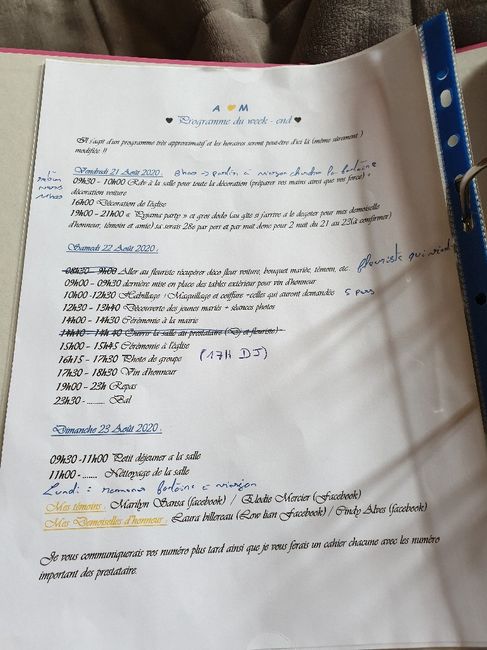 A 🧡 M
🖤 Programme du week - end 🖤
Il s'agit d'un programme très approximatif et les horaires seront peut-être d'ici là (même sûrement )
modifiée !!
Vendredi 21 Août 2020 : 8h00 → partir a chercher la fontaine
09h30 - 10h00 Rdv à la salle pour toute la décoration (préparer vos mains ainsi que vos force) +
décoration voiture
16h00 Décoration de l'église
19h00 - 21h00 « Pyjama party » et gros dodo (au gîte si j'arrive a le degoter pour mes demoiselle
d'honneur, témoin et amie) sa serais 28e par pers et par nuit donc pour 2 nuit du 21 au 23(à confirmer)
Samedi 22 Août 2020 :
08h30 - 9h00 Aller au fleuriste récupérer déco fleur voiture, bouquet mariée, témoin, etc. fleuriste qui vient
09h00 - 09h30 dernière mise en place des tables extérieur pour vin d'honneur
10h00 -12h30 Habillage / Maquillage et coiffure +celles qui auront demandées 5 pers
12h30 - 13h40 Découverte des jeunes mariés + séances photos
14h00 - 14h30 Cérémonie à la mairie
14h40 - 14h40 Ouvrir la salle au prestataire (Dj et fleuriste)
15h00 - 15h45 Cérémonie à l'église
16h15 - 17h30 Photo de groupe (17H DJ)
17h30 - 18h30 Vin d'honneur
19h00 - 23h Repas
23h30 - ......... Bal
Dimanche 23 Août 2020 :
09h30 -11h00 Petit déjeuner a la salle
11h00 - ....... Nettoyage de la salle
Lundi = fontaine a
Mes témoins : Marilyn Sansa (facebook) / Elodie Mercier (Facebook)
Mes Demoiselles d'honneur : Laura billereau (Low lian Facebook) / Cindy Alves (facebook)
Je vous communiquerais vos numéro plus tard ainsi que je vous ferais un cahier chacune avec les numéro
important des prestataire.